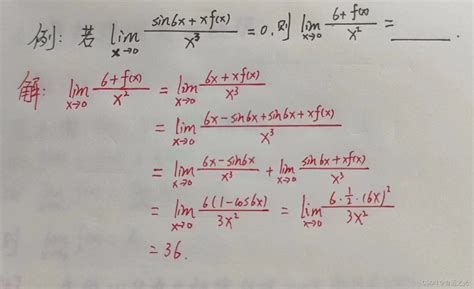 例: 若 lim_{x→0} \frac{sin6x + xf(x)}{x^3} = 0. 则 lim_{x→0} \frac{6 + f(x)}{x^2} = ____.
解: lim_{x→0} \frac{6 + f(x)}{x^2} = lim_{x→0} \frac{6x + xf(x)}{x^3}
= lim_{x→0} \frac{6x - sin6x + sin6x + xf(x)}{x^3}
= lim_{x→0} \frac{6x - sin6x}{x^3} + lim_{x→0} \frac{sin6x + xf(x)}{x^3}
= lim_{x→0} \frac{6(1 - cos6x)}{3x^2} = lim_{x→0} \frac{6 · \frac{1}{2} · (6x)^2}{3x^2}
= 36.